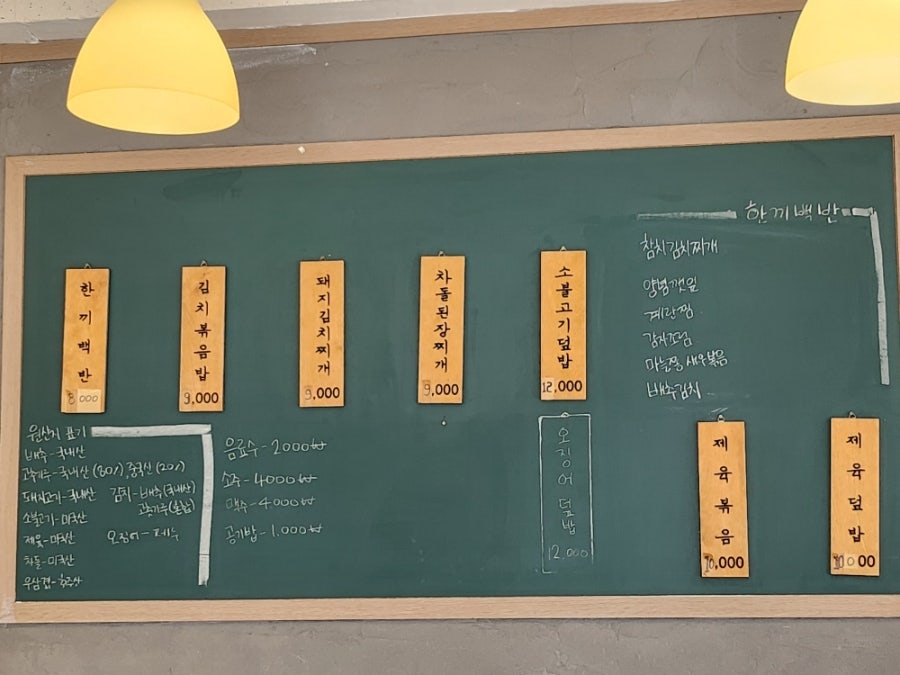 한끼백반
참치김치찌개
양념깻잎
계란찜
감자조림
마늘쫑 새우볶음
배추김치
한끼백반
8,000
김치볶음밥
9,000
돼지김치찌개
9,000
차돌된장찌개
9,000
소불고기덮밥
12,000
오징어덮밥
12,000
제육볶음
10,000
제육덮밥
10,000
원산지 표기
배추-국내산
고추가루-국내산(80%) 중국산(20%)
돼지고기-국내산
김치-배추(국내산)
고춧가루(혼합)
소불고기-미국산
제육-미국산
오징어-페루
차돌-미국산
우삼겹-
음료수-2000₩
소주-4000₩
맥주-4000₩
공기밥-1.000₩